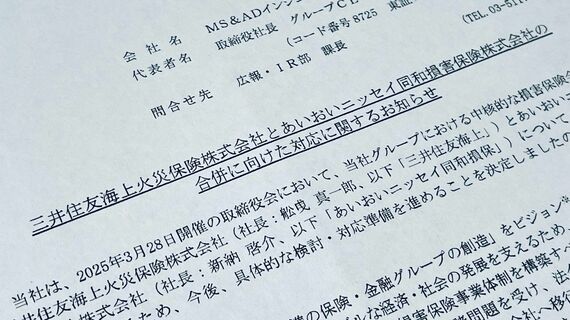 会社名 MS&ADインシ
代表者名 取締役社長 グループCE
(コード番号8725 東証
問合せ先 広報・IR部 課長
(TEL. 03-511
三井住友海上火災保険株式会社とあいおいニッセイ同和損害保険株式会社の
合併に向けた対応に関するお知らせ
当社は、2025年3月28日開催の取締役会において、当社グループにおける中核的な損害保険会
井住友海上火災保険株式会社(社長:舩曵 真一郎、以下「三井住友海上」)とあいおいニ
株式会社(社長:新納 啓介、以下「あいおいニッセイ同和損保」)について、
ため、今後、具体的な検討・対応準備を進めることを決定しましたの
の保険・金融グループの創造」をビジョン
ブルな経済・社会の発展を支えるため、
害保険事業体制を構築すべ
務問題を受け、法
会社へ移行